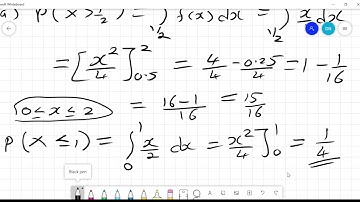 Microsoft Whiteboard
a) P(X > 1/2) = ∫ f(x) dx = ∫ x/2 dx
1/2 1/2
= [x²/4]²₀.₅ = 4/4 - 0.25/4 = 1 - 1/16
0 ≤ x ≤ 2 = 16-1/16 = 15/16
P(X ≤ 1) = ∫₀¹ x/2 dx = x²/4]₀¹ = 1/4
Black pen